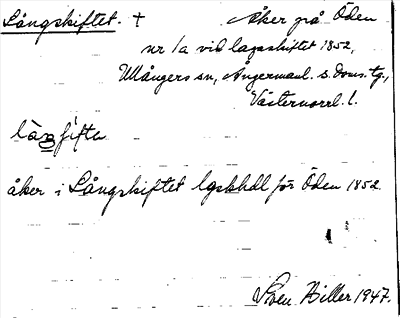 Långskiftet. † Åker på Öden
nr 1a vid lagaskiftet 1852,
Ullångers sn, Ångermanl. s. doms. tg.,
Västernorrl. l.
åker i Långskiftet lgskhdl för Öden 1852.
Sven Hiller 1947.